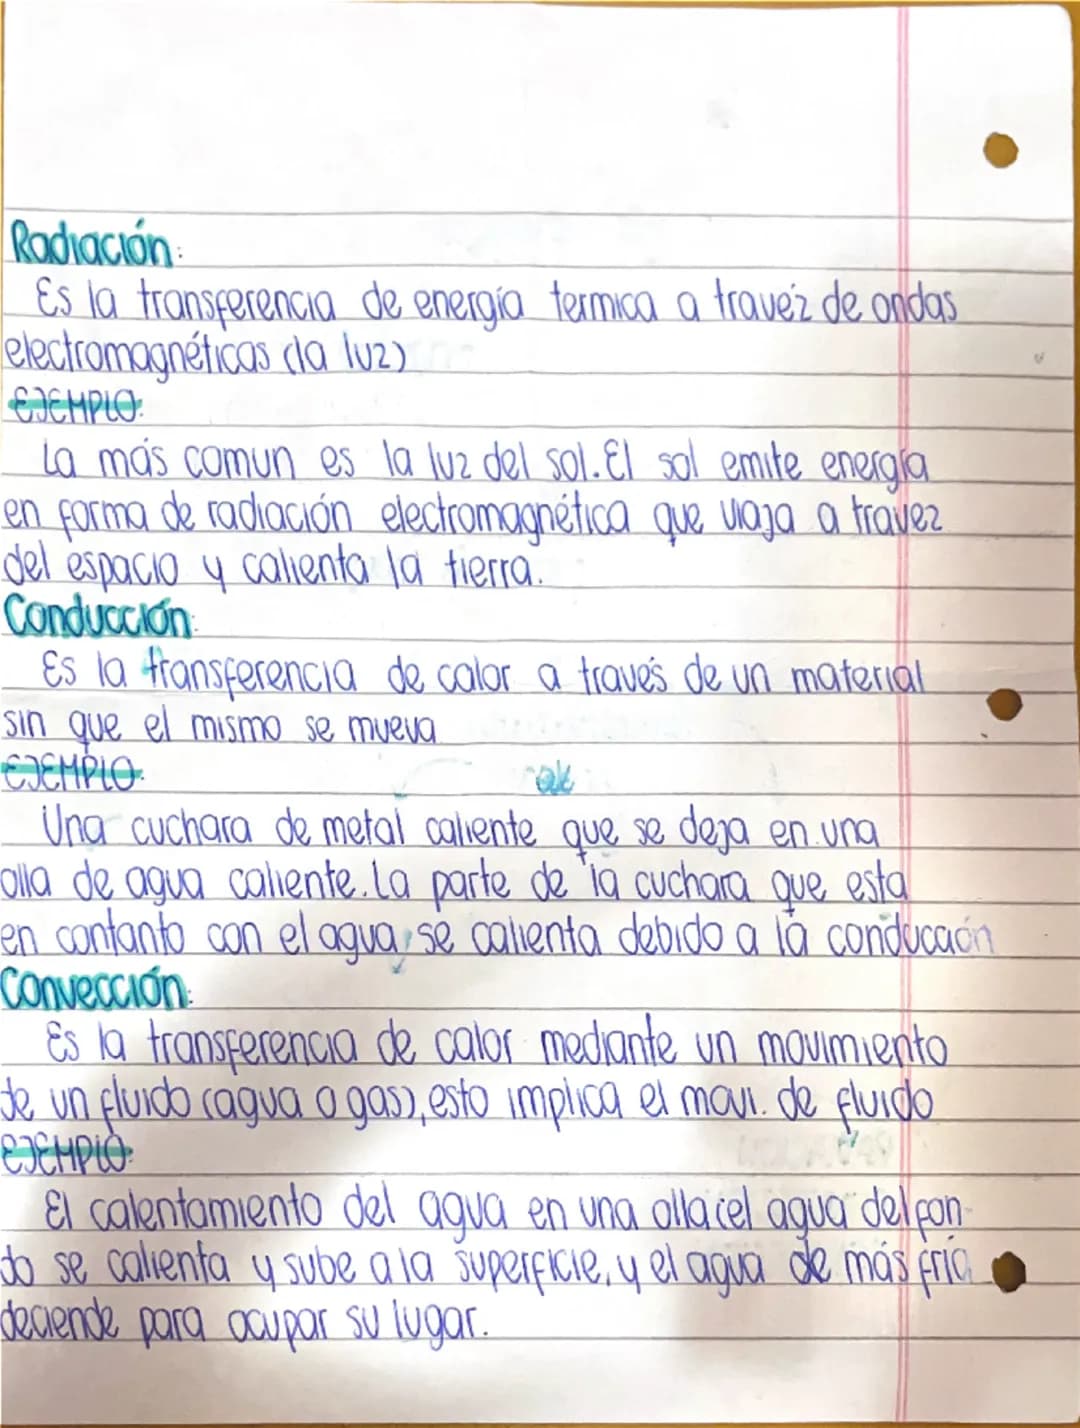 Radiación:
Es la transferencia de energía termica a travéz de ondas
electromagnéticas (la luz)
EJEMPLO:
La más comun es la luz del sol. El sol emite energía
en forma de radiación electromagnética que viaja a travez
del espacio y calienta la tierra.
Conducción:
Es la transferencia de calor a través de un material
sin que el mismo se mueva
EJEMPLO:
Una cuchara de metal caliente que se deja en una
olla de agua caliente. La parte de la cuchara que esta
en contanto con el agua, se calienta debido a la conducción
Convección:
Es la transferencia de calor mediante un movimiento
de un fluido (agua o gas), esto implica el movi. de fluido
EJEMPLO:
El calentamiento del agua en una olla (el agua del fon-
do se calienta y sube a la superficie, y el agua de más fría
deciende para ocupar su lugar.